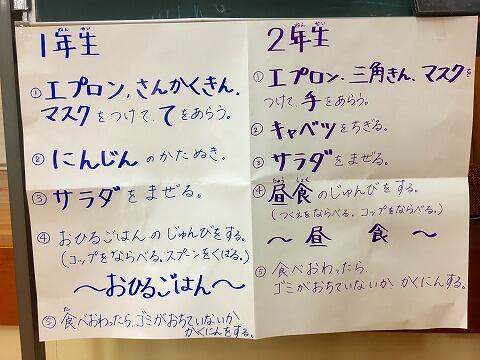 1年生
①エプロン、さんかくきん、
マスクをつけて、てをあらう。
②にんじんのかたぬき。
③サラダをまぜる。
④おひるごはんのじゅんびをする。
(コップをならべる。スプーンをくばる。)
〜おひるごはん〜
⑤食べおわったら、ゴミがおちていないか
かくにんをする。
2年生
①エプロン、三角きん、マスクを
つけて、手をあらう。
②キャベツをちぎる。
③サラダをまぜる。
④昼食のじゅんびをする。
(つくえをならべる。コップをならべる。)
〜昼食〜
⑤食べおわったら、
ゴミがおちていないかかくにんする。